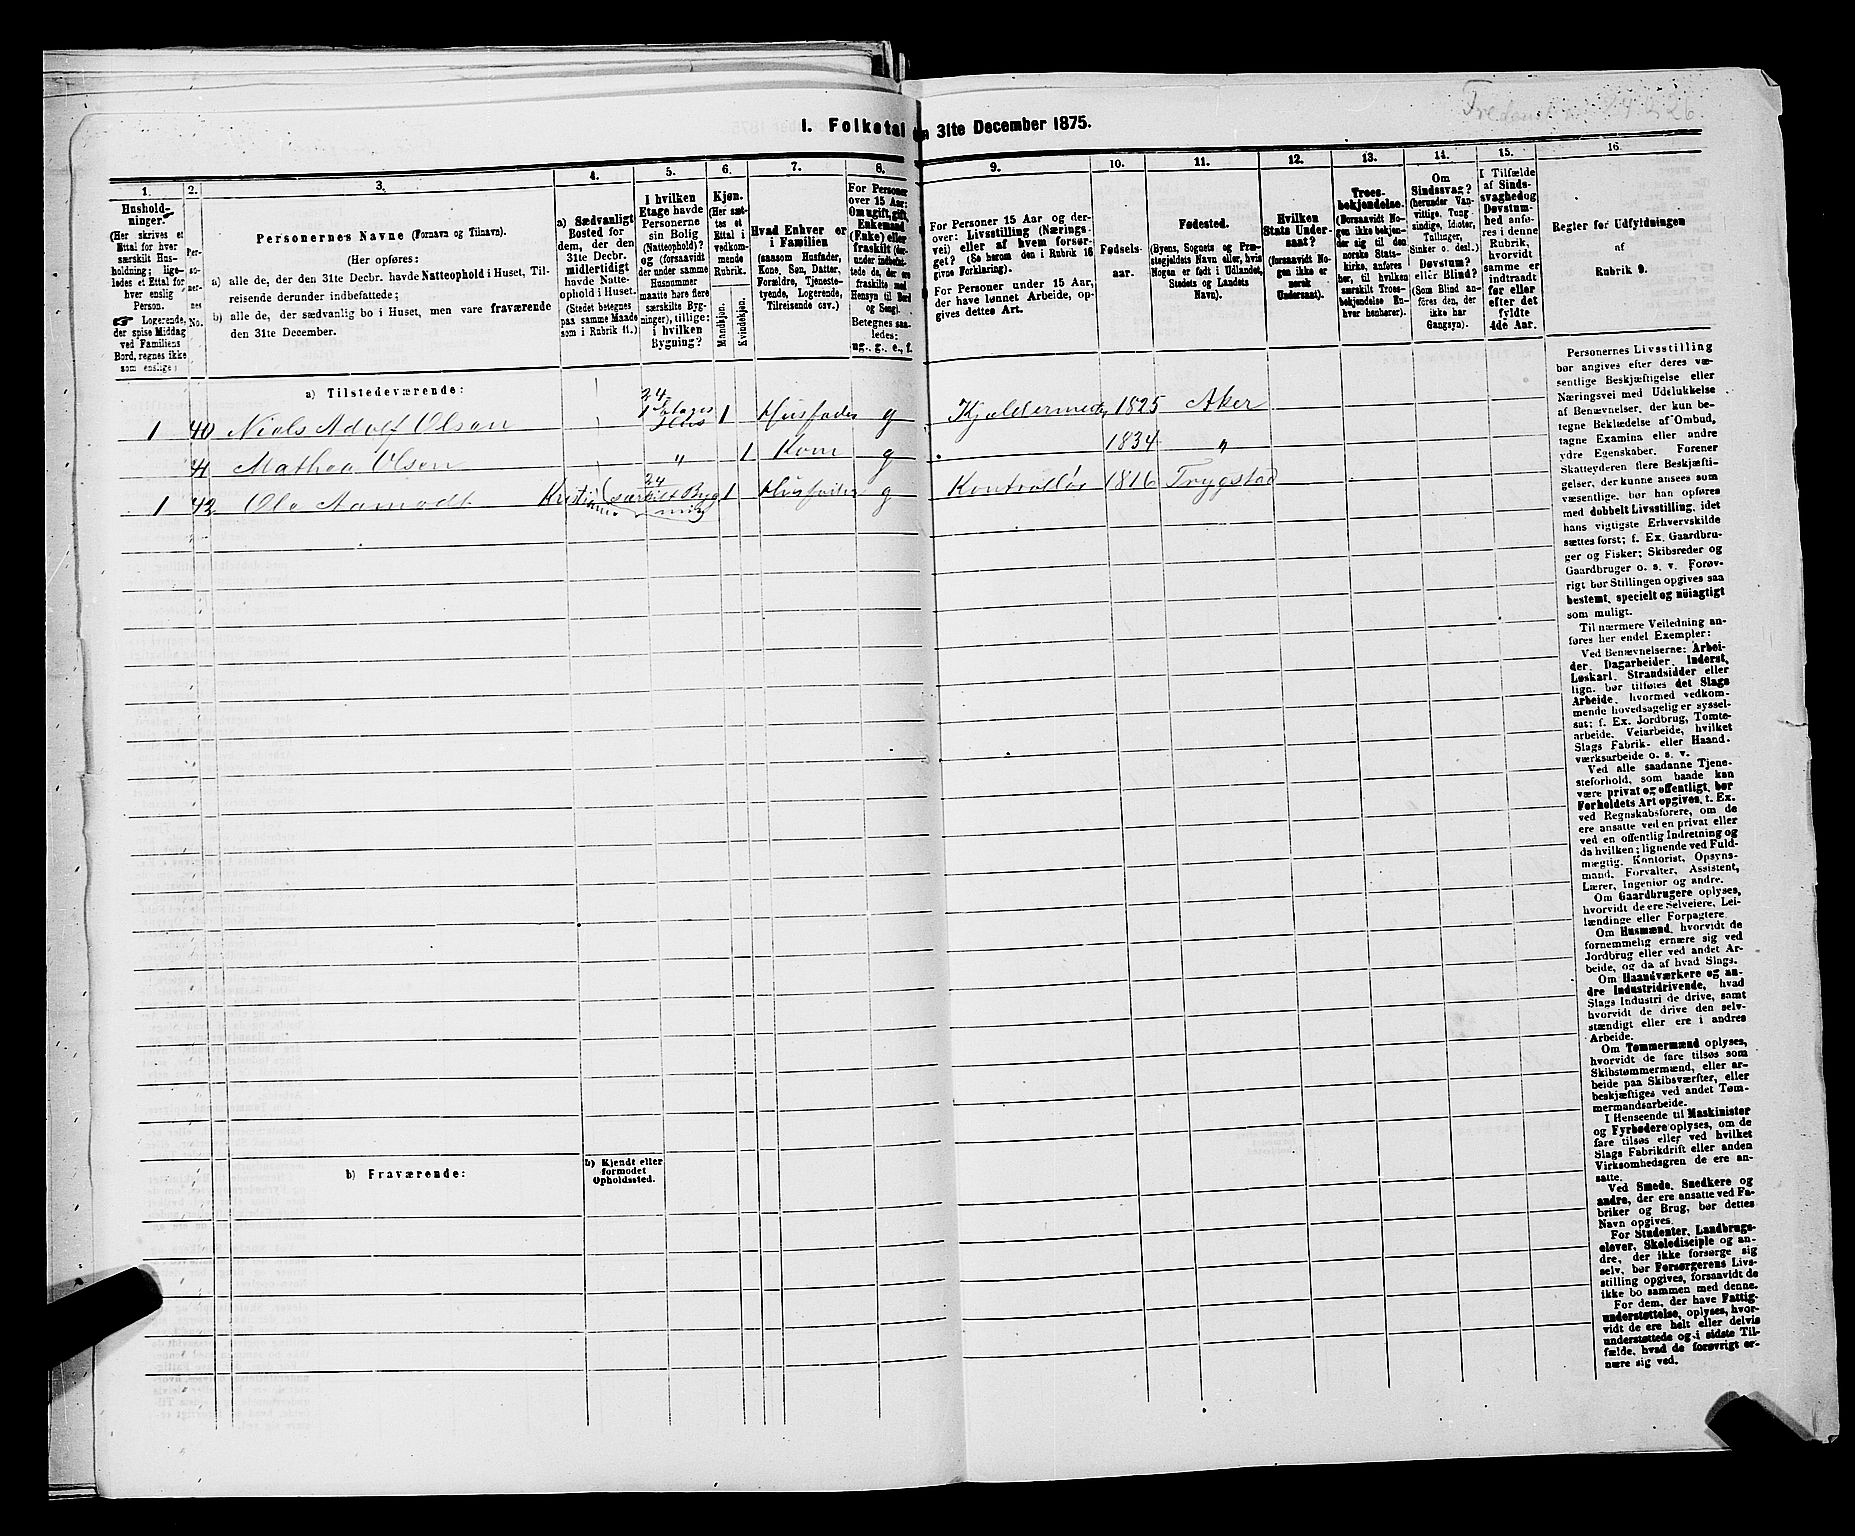 I. Folketal
31te December 1875.
1.
Hushold-
ninger.
(Her skrives et
Ettal for hver
særskilt Hus-
holdning; lige-
ledes et Ettal for
hver enslig
Person.
☞ Logerende,
der spise Middag
ved Familiens
Bord, regnes ikke
som enslige)
2.
Per-
so-
ner-
nes
No.
3.
Personernes Navne (Fornavn og Tilnavn).
(Her opføres:
a) alle de, der den 31te Decbr. havde Natteophold i Huset, Til-
reisende derunder indbefattede;
b) alle de, der sædvanlig bo i Huset, men vare fraværende
den 31te December.
4.
a) Sædvanligt
Bosted for
dem, der den
31te Decbr.
midlertidigt
havde Natte-
ophold i Huset.
(Stedet betegnes
paa samme Maade
som i Rubrik 11.)
5.
I hvilken
Etage havde
Personerne
sin Bolig
(Natteophold)?
og (forsaavidt
der under samme
Husnummer
maatte høre flere
særskilte Byg-
ninger), tillige:
i hvilken
Bygning?
6.
Kjøn.
(Her sæt-
tes et
Ettal i
vedkom-
mende
Rubrik.
Mandkjøn.
Kvindekjøn.
7.
Hvad Enhver er
i Familien
(saasom Husfader,
Kone, Søn, Datter,
Forældre, Tjeneste-
tyende, Logerende,
Tilreisende osv.)
8.
For Personer
over 15 Aar:
Om ugift, gift,
Enkemand
(Enke) eller
fraskilt (der-
under indbefat-
tede de, der ere
fraskilte med
Hensyn til Bord
og Seng).
Betegnes saa-
ledes:
ug., g., e., f.
9.
For Personer 15 Aar og der-
over: Livsstilling (Nærings-
vei) eller af hvem forsør-
get? (Se herom den i Rubrik 16
givne Forklaring).
For Personer under 15 Aar,
der have lønnet Arbeide, op-
gives dettes Art.
10.
Fødsels-
aar.
11.
Fødested.
(Byens, Sognets og Præ-
stegjeldets Navn eller, hvis
Nogen er født i Udlandet,
Stedets og Landets
Navn).
12.
Hvilken
Stats Under-
saat?
(forsaavidt No-
gen ikke er
norsk
Undersaat).
13.
Troes-
bekjendelse.
(Forsaavidt No-
gen ikke bekjen-
der sig til den
norske Stats-
kirke, anføres
her, til hvilken
særskilt Troes-
bekjendelse En-
hver henhører).
14.
Om
Sindssvag?
(herunder Van-
vittige, Tung-
sindige, Idioter,
Tullinger,
Sinker o. desl.)
Døvstum?
eller Blind?
(Som Blind an-
føres den, der
ikke har
Gangsyn).
15.
I Tilfælde
af Sinds-
svaghed og
Døvstum-
hed anfø-
res i denne
Rubrik,
hvorvidt
samme er
indtraadt
før eller
efter det
fyldte
4de Aar.
16.
Regler for Udfyldningen
af
Rubrik 9.
a) Tilstedeværende:
1 40 Niels Adolf Olsen 24 1 Etages Hus 1 Husfader g Kjældermed 1825 Aker
41 Mathea Olsen " 1 Kone g 1834 "
1 42 Ole Aamodt Kristiania 24 særskilt Byg 1 Husfader g Kontrollør 1816 Trygstad
b) Fraværende:
b) Kjendt eller
formodet
Opholdssted.
Personernes Livsstilling
bør angives efter deres væ-
sentlige Beskjæftigelse eller
Næringsvei med Udelukkelse
af Benævnelser, der kun be-
tegne Beklædelse af Ombud,
tagne Examina eller andre
ydre Egenskaber. Forener
Skatteyderen flere Beskjæfti-
gelser, der kunne ansees som
væsentlige, bør han opføres
med dobbelt Livsstilling, idet
hans vigtigste Erhvervskilde
sættes først; f. Ex. Gaardbru-
ger og Fisker; Skibsreder og
Gaardbruger o. s. v. Forøv-
rigt bør Stillingen opgives saa
bestemt, specielt og nöiagtigt
som muligt.
Til nærmere Veiledning an-
føres her endel Exempler:
Ved Benævnelserne: Arbei-
der, Dagarbeider, Inderst,
Løskarl, Strandsidder eller
lign. bør tilføies det Slags
Arbeide, hvormed vedkom-
mende hovedsagelig er syssel-
sat; f. Ex. Jordbrug, Tomte-
arbeide, Veiarbeide, hvilket
Slags Fabrik- eller Haand-
værksarbeide o. s. v.
Ved alle saadanne Tjene-
steforhold, som baade kan
være privat og offentligt, bør
Forholdets Art opgives, t. Ex.
ved Regnskabsførere, om de
ere ansatte ved en privat eller
ved en offentlig Indretning og
da hvilken; lignende ved Fuld-
mægtig, Kontorist, Opsyns-
mand, Forvalter, Assistent,
Lærer, Ingeniør og andre.
Om Gaardbrugere oplyses,
hvorvidt de ere Selveiere, Lei-
lændinge eller Forpagtere.
Om Husmænd, hvorvidt de
fornemmelig ernære sig ved
Jordbrug eller ved andet Ar-
beide, og da af hvad Slags.
Om Haandværkere og an-
dre Industridrivende, hvad
Slags Industri de drive, samt
hvorvidt de drive den selv-
stændigt eller ere i andres
Arbeide.
Om Tømmermænd oplyses,
hvorvidt de fare tilsøs som
Skibstømmermænd, eller ar-
beide paa Skibsværfter, eller
beskjæftiges ved andet Tøm-
mermandsarbeide.
I Henseende til Maskinister
og Fyrbødere oplyses, om de
fare tilsøs eller ved hvilket
Slags Fabrikdrift eller anden
Virksomhedsgren de ere an-
satte.
Ved Smede, Snedkere og
andre, der ere ansatte ved Fa-
briker og Brug, bør dettes
Navn opgives.
For Studenter, Landbrugs-
elever, Skoledisciple og an-
dre, der ikke forsørge sig
selv, bør Forsørgerens Livs-
stilling opgives, forsaavidt de
ikke bo sammen med denne.
For dem, der have Fattig-
understøttelse, oplyses, hvor-
vidt de ere helt eller delvis
understøttede og i sidste Til-
fælde, hvad de forøvrigt er-
nære sig ved.